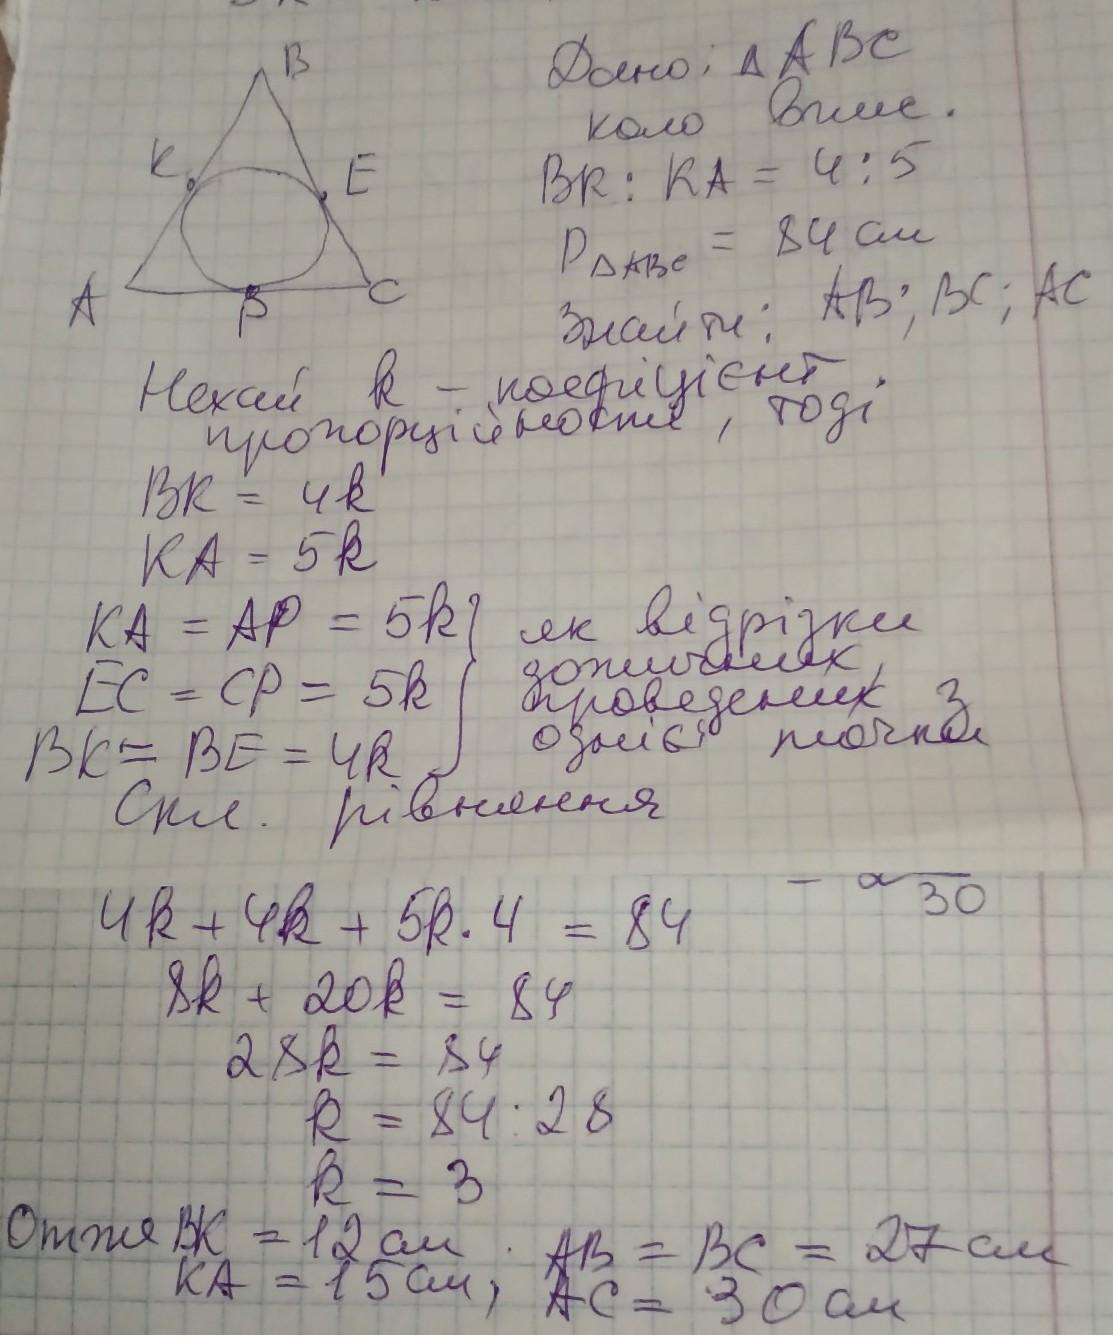 B
K
E
A
P
C
Дано: △ABC
коло впис.
BK : KA = 4:5
P△ABC = 84 см
Знайти: AB; BC; AC
Нехай k – коефіцієнт
пропорційности, тоді
BK = 4k
KA = 5k
KA = AP = 5k
EC = CP = 5k
BK = BE = 4k
як відрізки
дотичних,
проведених з
однієї точки
Скл. рівняння
30
4k + 4k + 5k · 4 = 84
8k + 20k = 84
28k = 84
k = 84 : 28
k = 3
Отже BK = 12 см
KA = 15 см,
AB = BC = 27 см
AC = 30 см